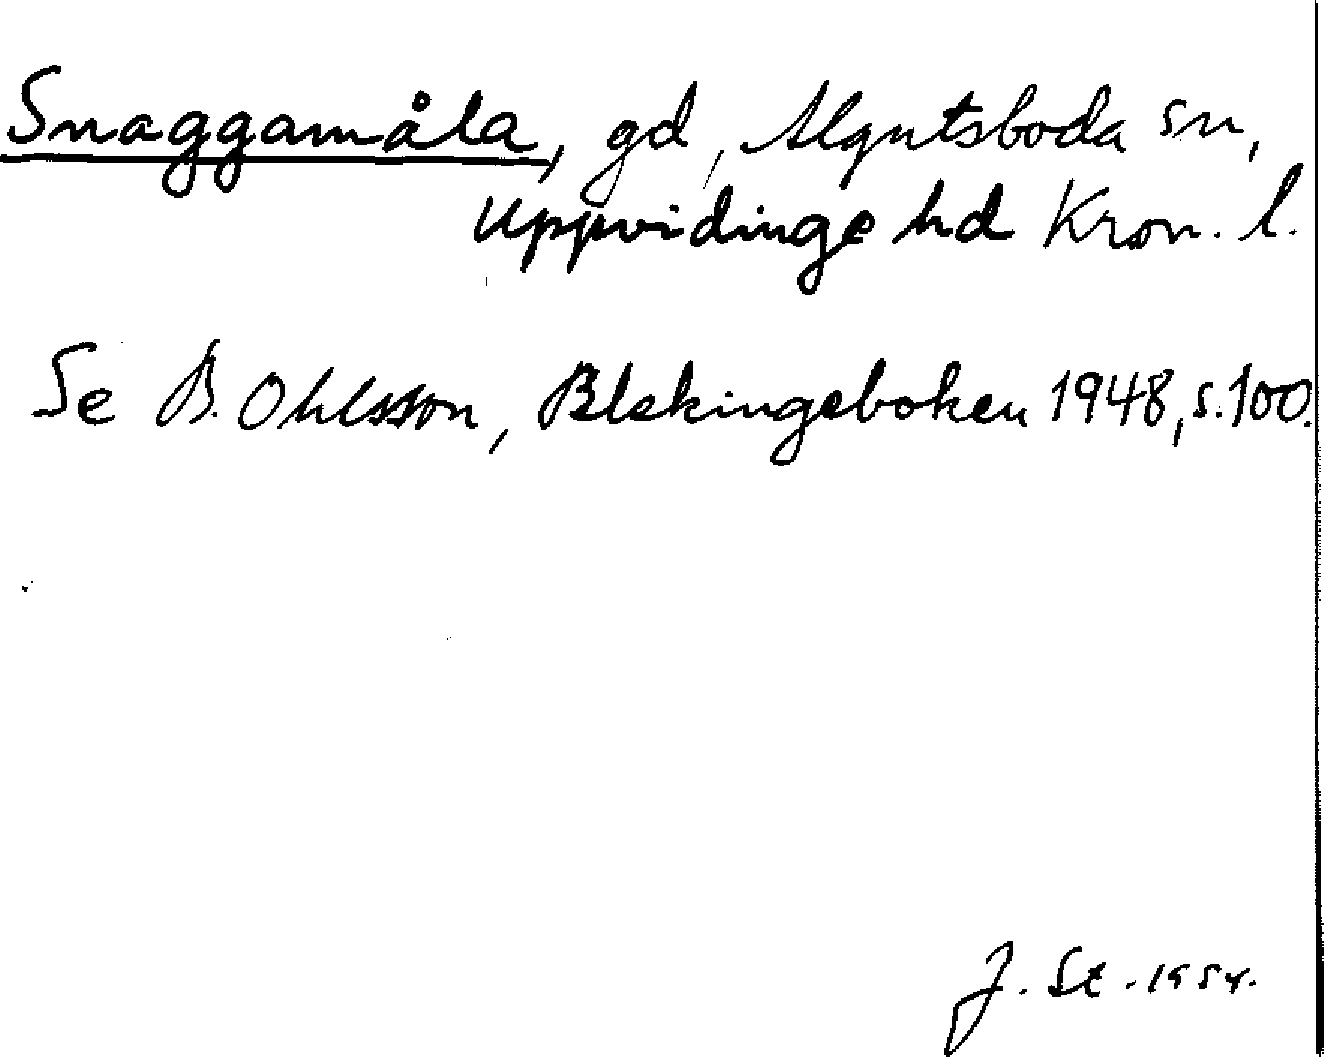 Snaggamåla, gd, Algutsboda sn,
Uppvidinge hd Kron. l.
Se B. Ohlsson, Blekingeboken 1948, s. 100.
J. St. 1954.